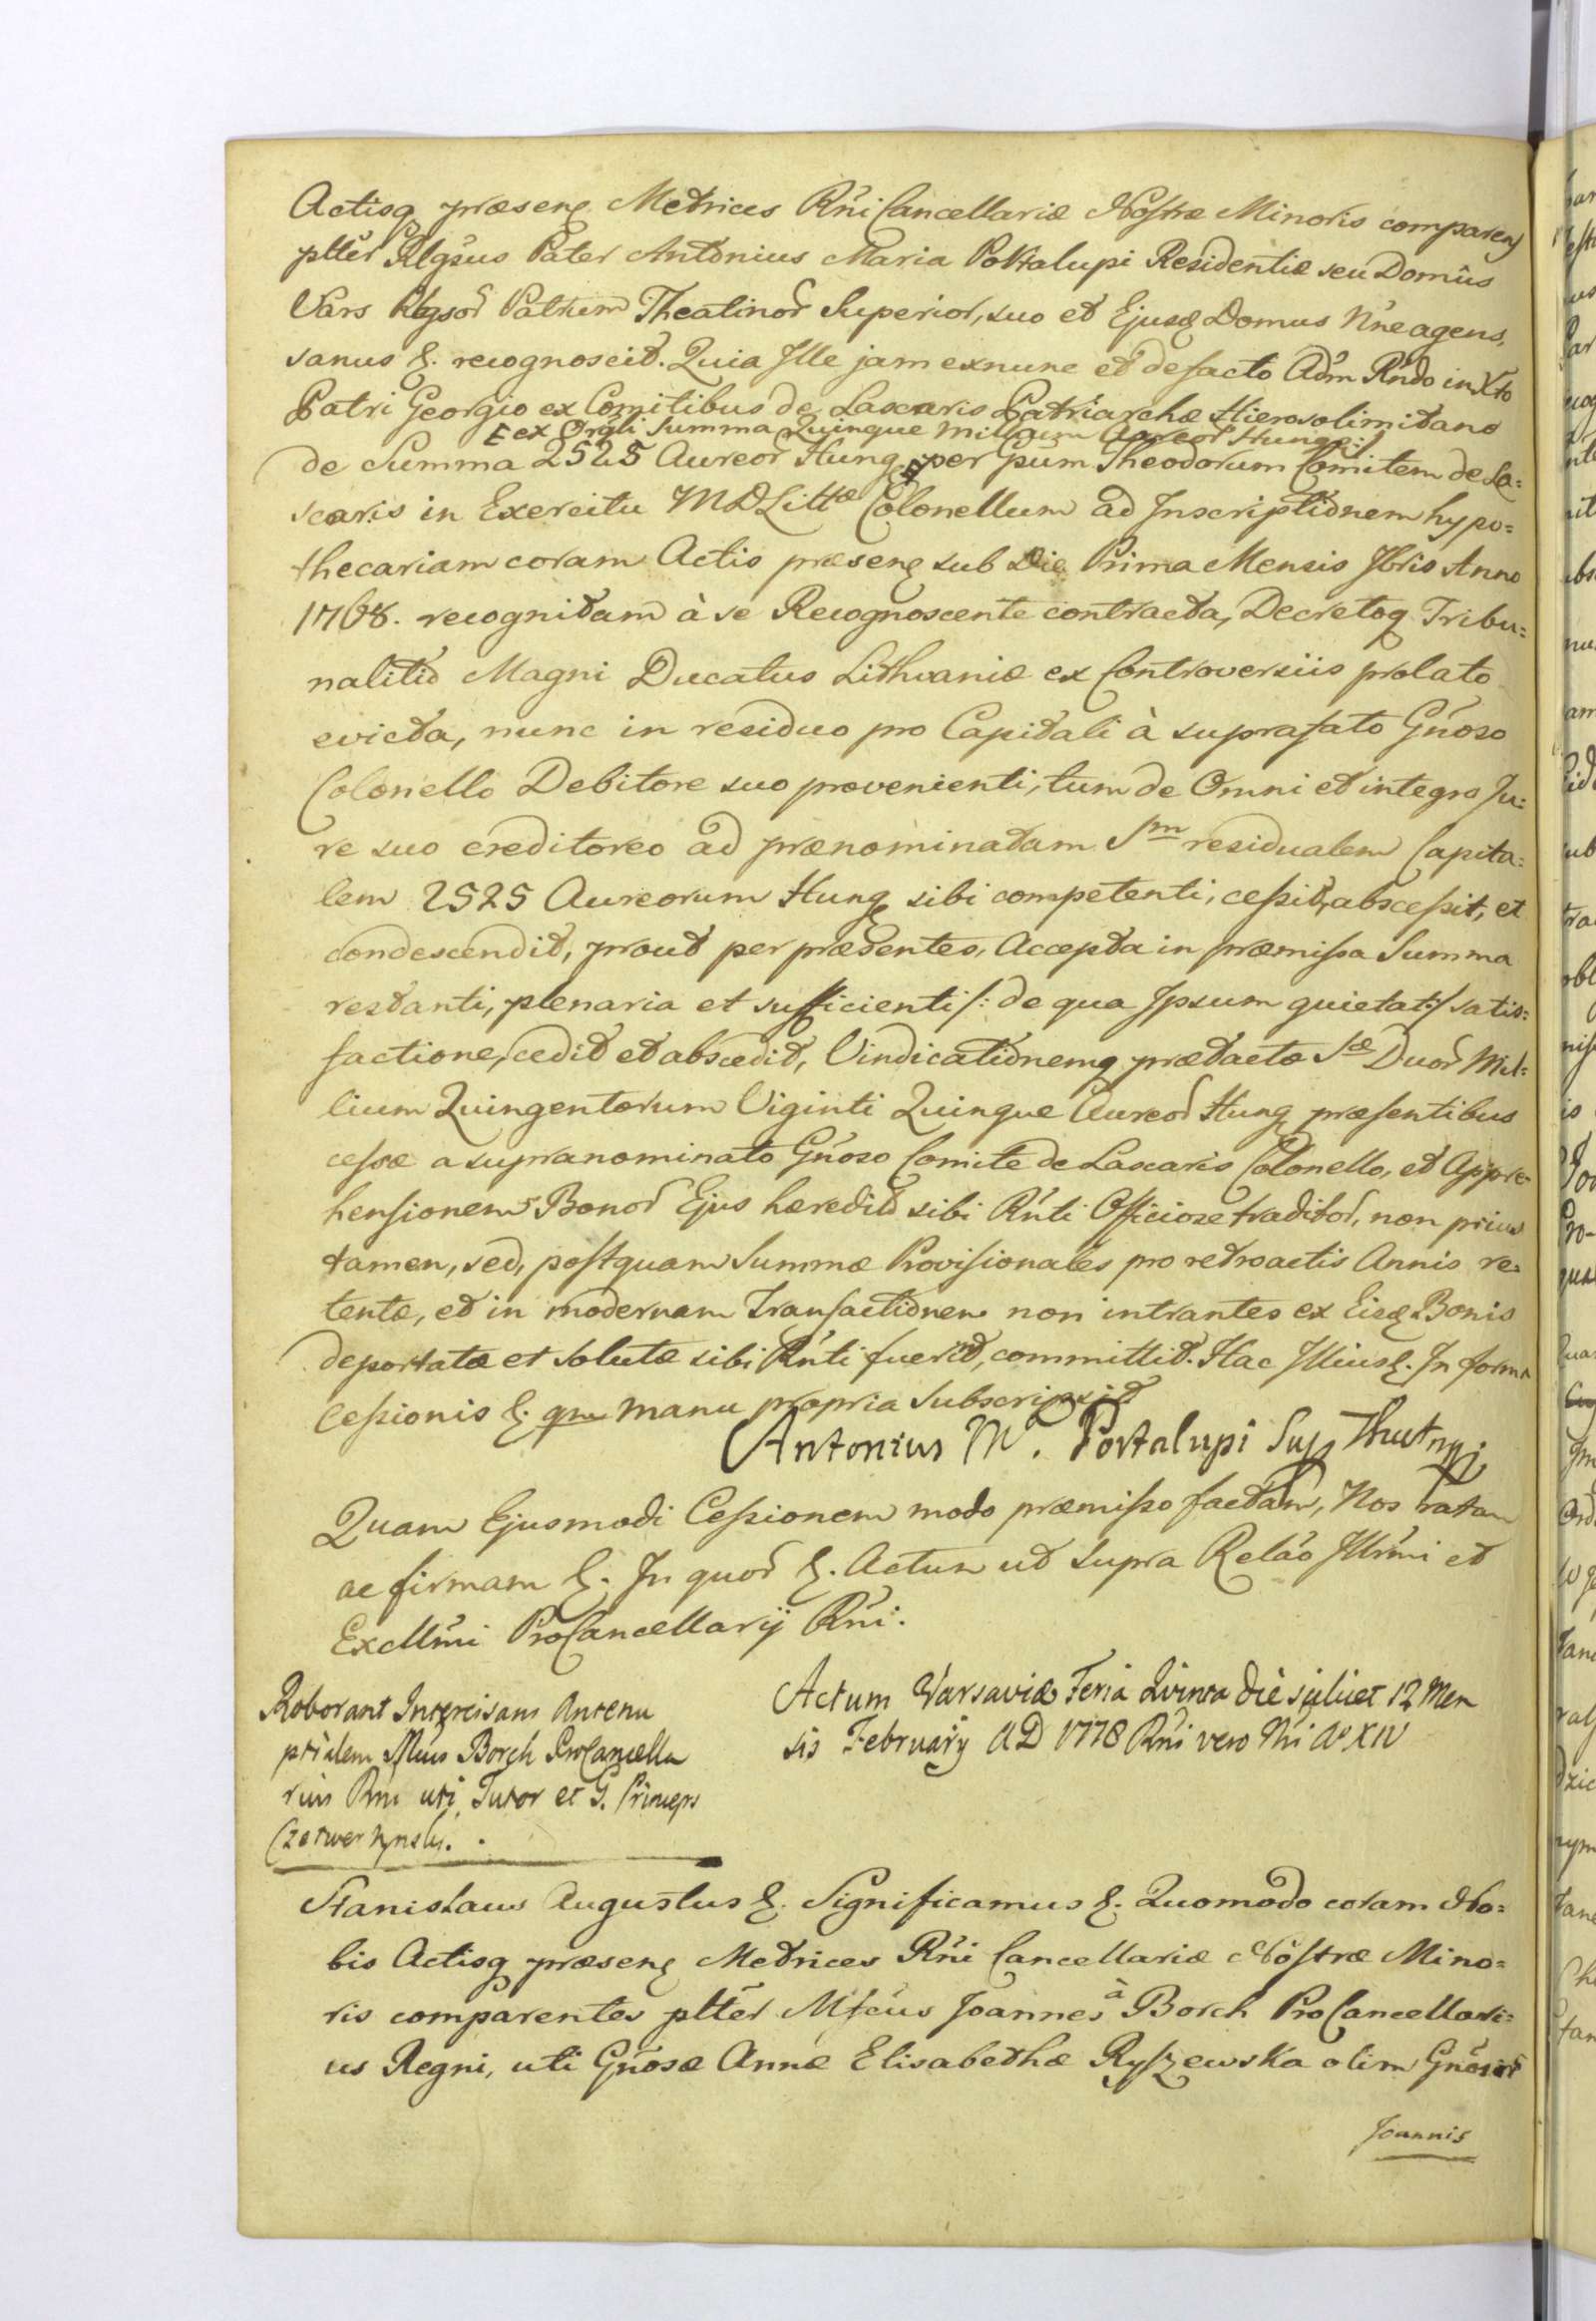 Actisq præsens Metrices Rńi Cancellariæ Nostræ Minoris comparens
ptter Rlgsus Pater Antonius Maria Portalupi Residentiæ seu Domûs
Vars Rlgsor Patrum Theatinor Superior, suo et Ejusq Domus Nńe agens,
sanus &. recognoscit. Quia Ille jam exnunc et defacto Adm Rńdo in Xto
Patri Georgio ex Comitibus de Lascaris Patriarchæ Hierosolimitano
ex Orgli Summa Quinque Millium Aureor Hung:
de Summa 2525 Aureor Hung per Gńum Theodorum Comitem de La=
scaris in Exercitu MDLittæ Colonellum ad Inscriptionem hypo=
thecariam coram Actis præsens sub Die Prima Mensis 7bris Anno
1768. recognitam à se Recognoscente contracta, Decretoq Tribu=
nalitio Magni Ducatus Lithvaniæ ex Controversiis prolato
evicta, nunc in residuo pro Capitali à suprafato Gńoso
Colonello Debitore suo provenienti, tum de Omni et integro Ju=
re suo creditoreo ad prænominatam Sm residualem Capita=
lem 2525 Aureorum Hung sibi competenti, cessit, abscessit, et
condescendit, prout per præsentes, Accepta in præmissa Summa
restanti, plenaria et sufficienti /: de qua Ipsum quietat :/ satis=
factione, cedit et abscedit, Vindicationemq prætactæ Sæ Duor Mil=
lium Quingentorum Viginti Quinque Aureor Hung præsentibus
cessæ a supranominato Gńoso Comite de Lascaris Colonello, et Appre=
hensionem Bonor Ejus hæredit sibi Rńti Officiose traditor, non prius
tamen, sed, postquam Summæ Provisionales pro retroactis Annis re=
tentæ, et in modernam Transactionem non intrantes ex Eisq Bonis
deportatæ et solutæ sibi Rńti fuerit, committit. Hac Illius &. In forma
Cessionis &. qm manu propria Subscripsit
Antonius Mª. Portalupi Sup
Quam Ejusmodi Cessionem modo præmisso factam, Nos ratam
ac firmam &. In quor &. Actum ut supra Relão Illrmi et
Excllmi ProCancellarij Rńi.
Roborant Intercisam Antenu
ptialem Mcus Borch ProCancella
rius Rni uti Tutor et G. Princeps
Czetwertynski.
Actum Varsaviæ Feria Quinta die scilicet 12 Men
sis February AD 1778 Rńi vero Nri Aº XIV
Stanislaus Augustus &. Significamus &. Quomodo coram No=
bis Actisq præsens Metrices Rńi Cancellariæ Nostræ Mino=
ris comparentes ptter Mfcus Joannes à Borch ProCancellari=
us Regni, uti Gńosæ Annæ Elisabethæ Ryszewska olim Gńosior
Joannis